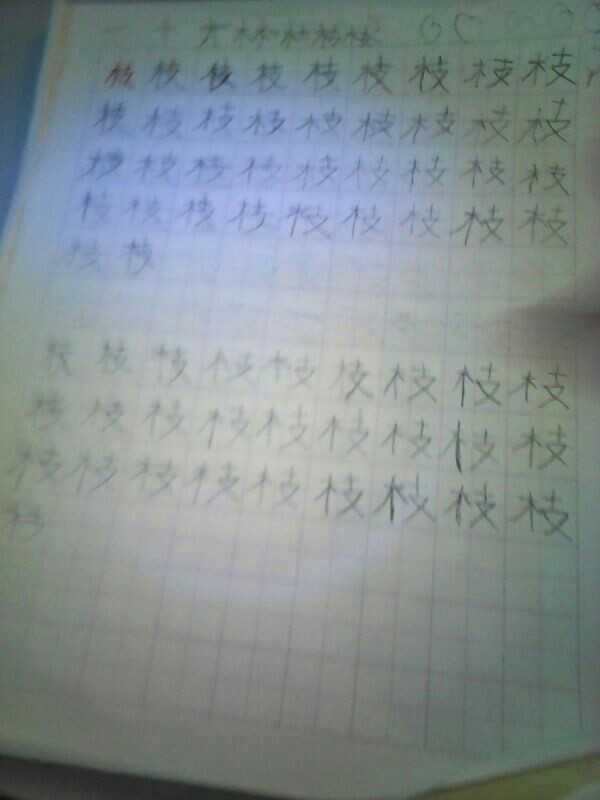 一 十 才 木 木 杜 枝 枝
枝 枝 枝 枝 枝 枝 枝 枝 枝
枝 枝 枝 枝 枝 枝 枝 枝 枝
枝 枝 枝 枝 枝 枝 枝 枝 枝
枝 枝 枝 枝 枝 枝 枝 枝 枝
枝 枝
枝 枝 枝 枝 枝 枝 枝 枝 枝
枝 枝 枝 枝 枝 枝 枝 枝 枝
枝 枝 枝 枝 枝 枝 枝 枝 枝
枝